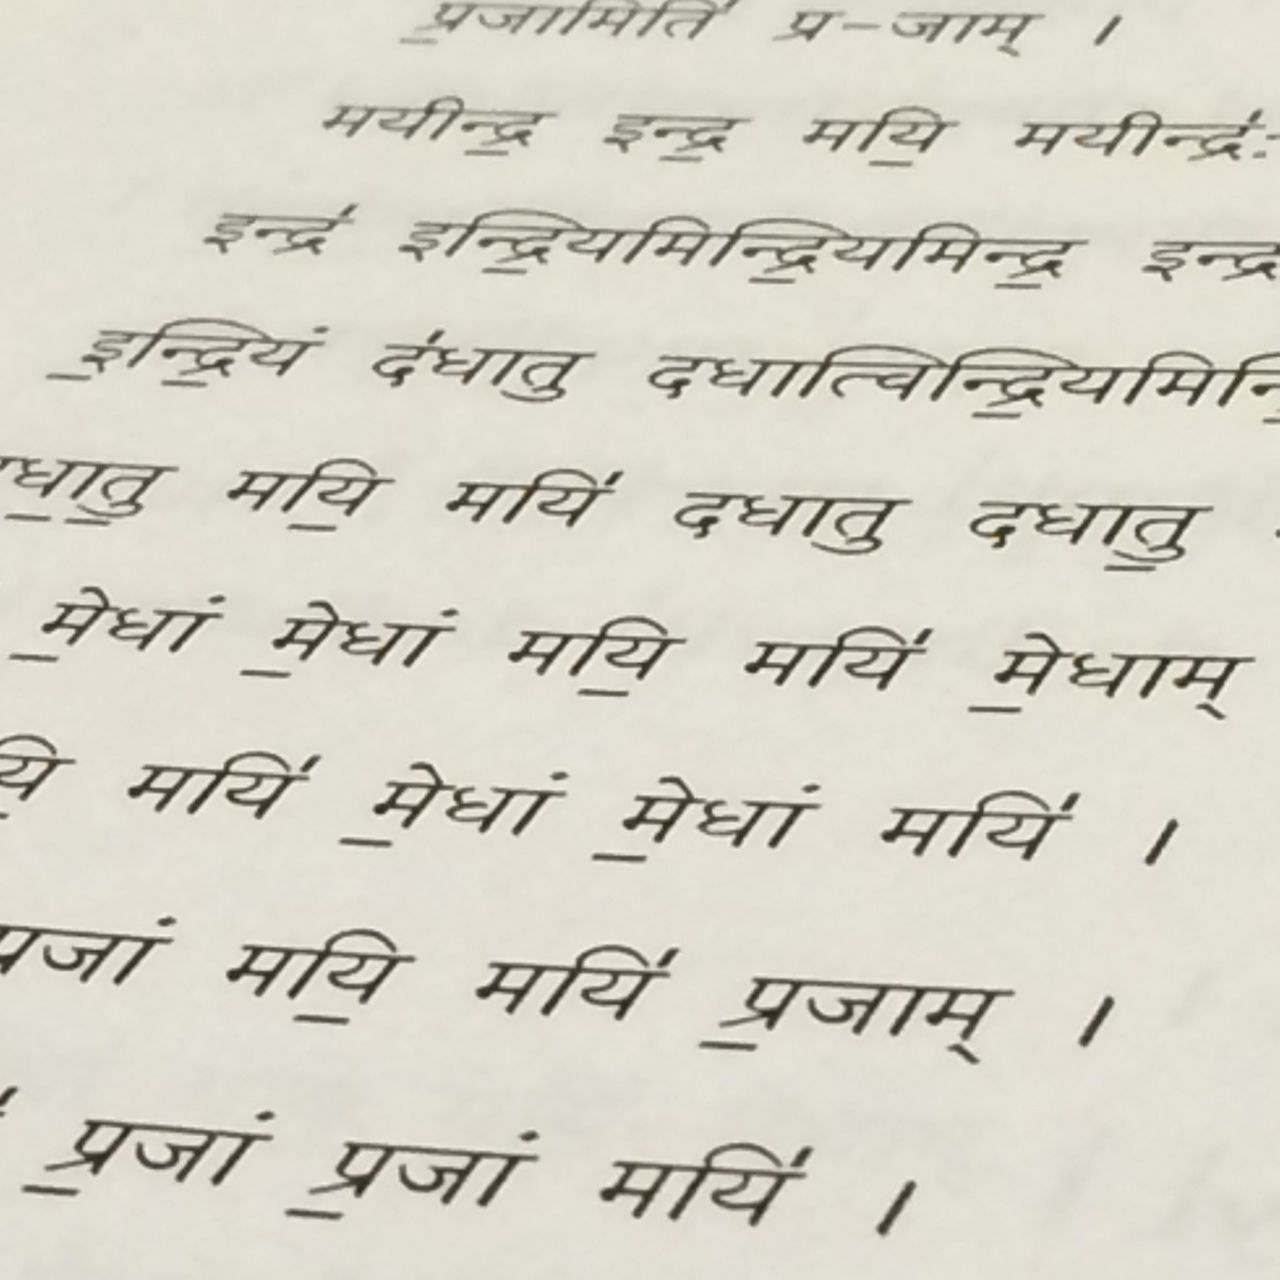 प्र॒जामिति॑ प्र-जाम् ।
मयीन्द्र॒ इन्द्र॒ मयि॒ मयीन्द्रः॑
इन्द्र॑ इन्द्रि॒यमिन्द्रि॒यमिन्द्र॒ इन्द्र
इ॒न्द्रि॒यं द॑धातु दधात्विन्द्रि॒यमिन्द्रि॒
मयि॒ मयि॑ दधातु दधातु॒
मे॒धां मे॒धां मयि॒ मयि॑ मे॒धाम्
मयि॑ मे॒धां मे॒धां मयि॑ ।
प्रजां मयि॒ मयि॑ प्र॒जाम् ।
प्र॒जां प्र॒जां मयि॑ ।